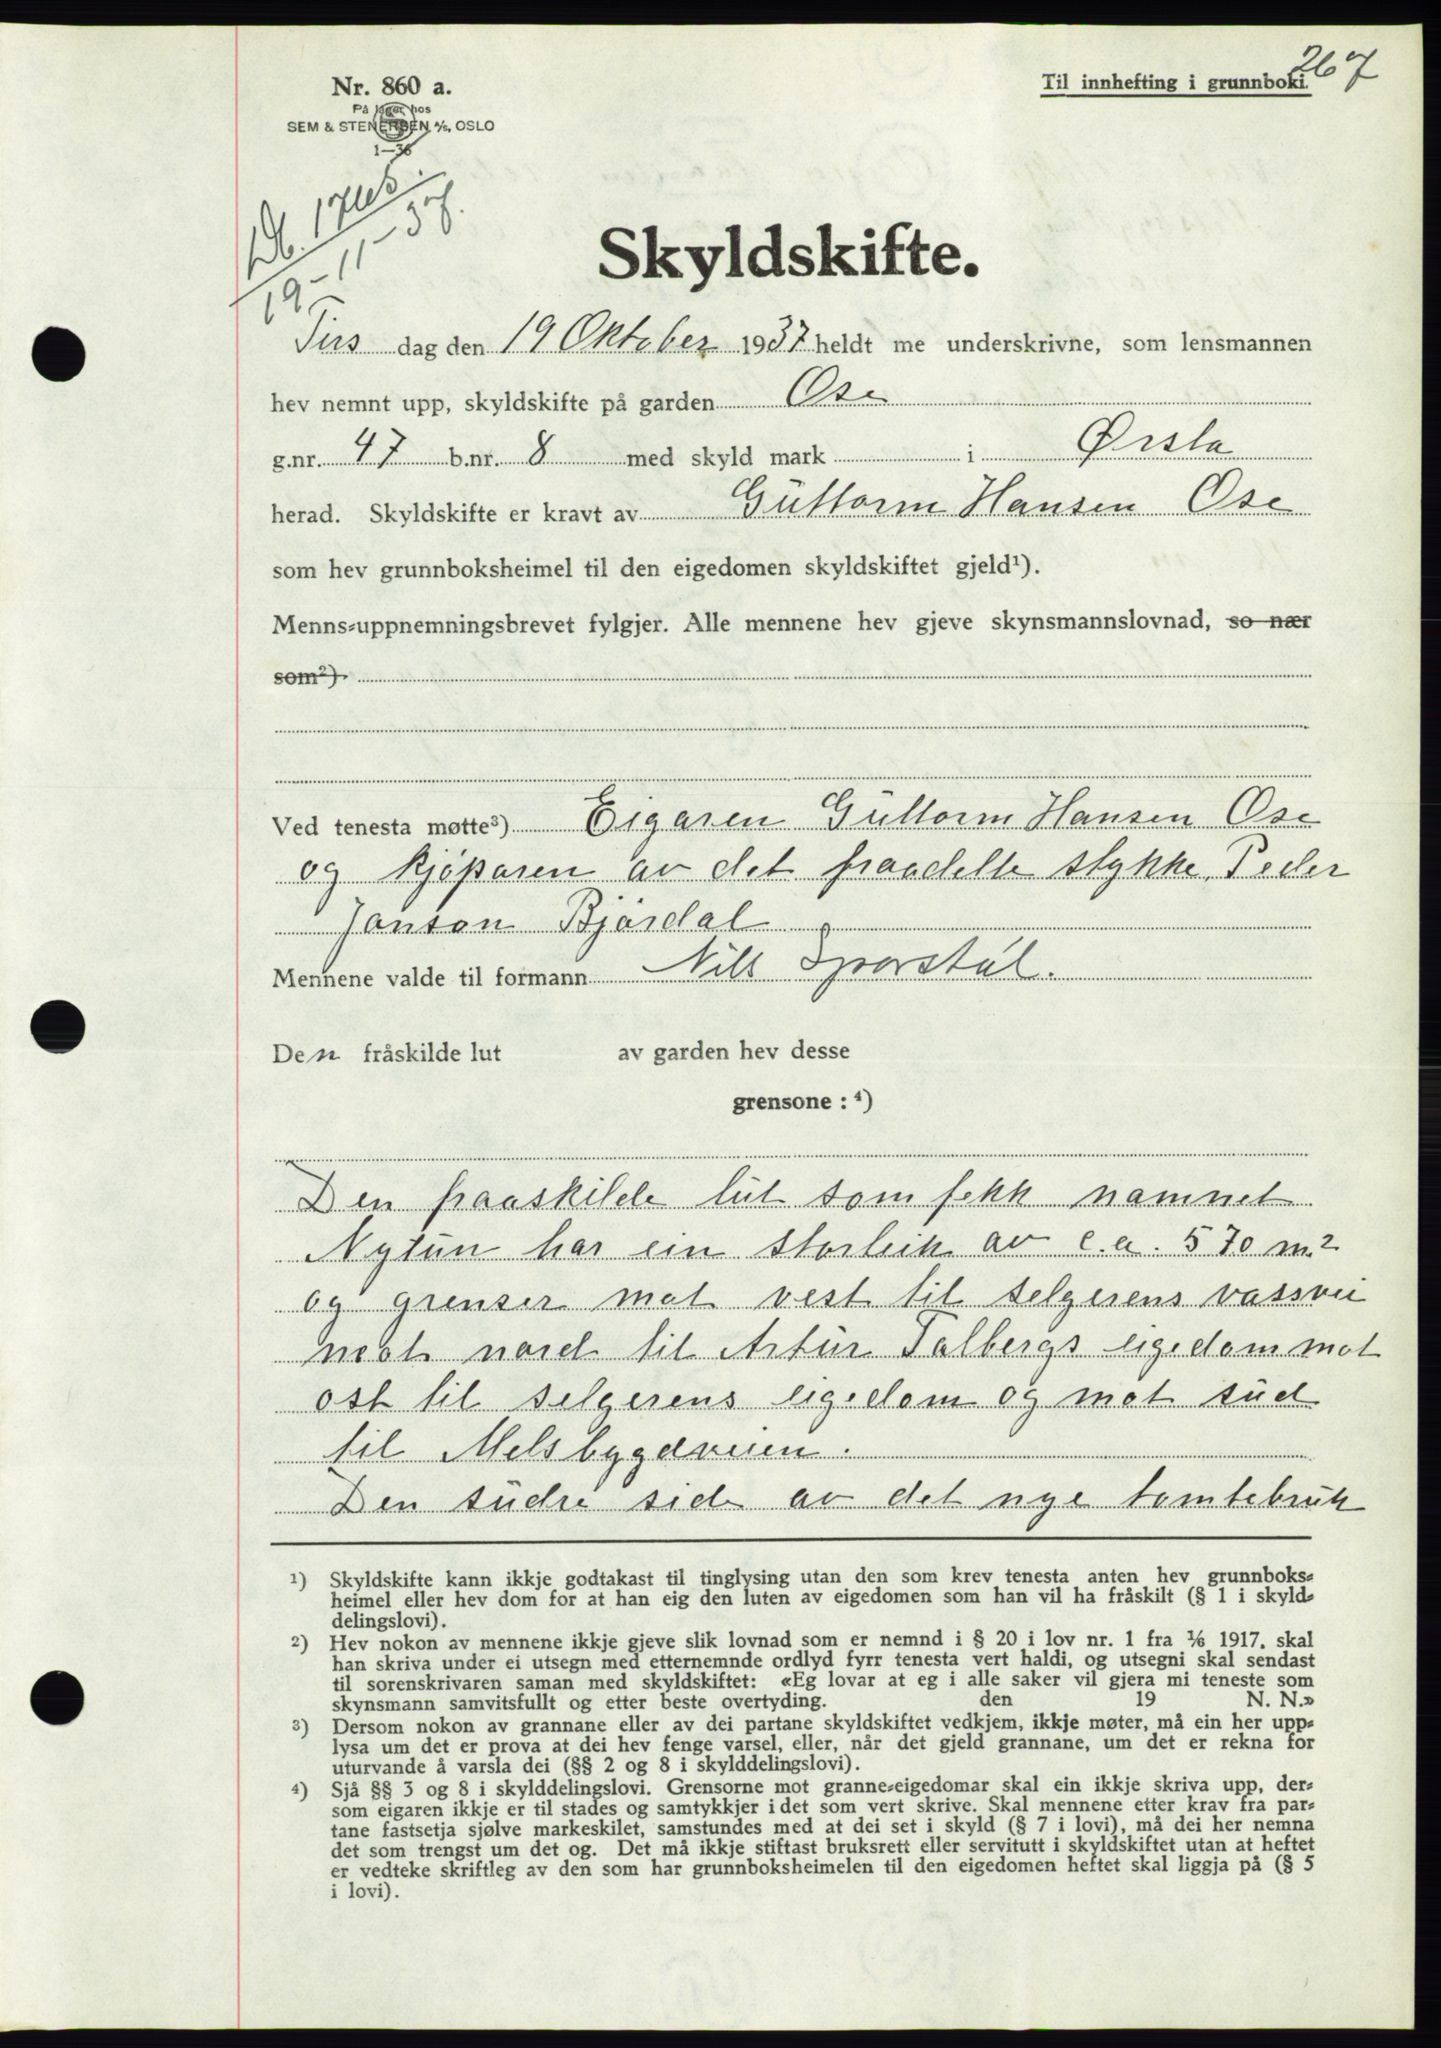 267
Nr. 860 a.
Til innhefting i grunnboki.
På lager hos
SEM & STENERSEN A/S, OSLO
1—36
Db. 1745.
19-11-37.
Skyldskifte.
Tirs dag den 19 Oktober 1937 heldt me underskrivne, som lensmannen
hev nemnt upp, skyldskifte på garden Ose
g.nr. 47 b.nr. 8 med skyld mark i Ørsta
herad. Skyldskifte er kravt av Guttorm Hansen Ose
som hev grunnboksheimel til den eigedomen skyldskiftet gjeld¹).
Menns-uppnemningsbrevet fylgjer. Alle mennene hev gjeve skynsmannslovnad, so nær
som²)
Ved tenesta møtte³) Eigaren Guttorm Hansen Ose
og kjøparen av det fraadelte stykke, Peder
Janson Bjørdal
Mennene valde til formann Nils
Den fråskilde lut av garden hev desse
grensone : ⁴)
Den fraaskilde lut som fekk namnet
Nytun har ein storleik av c.a. 570 m²
og grenser mot vest til selgerens vassvei
mot nord til Artur Talbergs eigedom mot
ost til selgerens eigedom og mot sud
til Melsbygdveien.
Den sudre side av det nye tomtebruk
¹) Skyldskifte kann ikkje godtakast til tinglysing utan den som krev tenesta anten hev grunnboks-
heimel eller hev dom for at han eig den luten av eigedomen som han vil ha fråskilt (§ 1 i skyld-
delingslovi).
²) Hev nokon av mennene ikkje gjeve slik lovnad som er nemnd i § 20 i lov nr. 1 fra 1/6 1917, skal
han skriva under ei utsegn med etternemnde ordlyd fyrr tenesta vert haldi, og utsegni skal sendast
til sorenskrivaren saman med skyldskiftet: «Eg lovar at eg i alle saker vil gjera mi teneste som
skynsmann samvitsfullt og etter beste overtyding. den 19 N. N.»
³) Dersom nokon av grannane eller av dei partane skyldskiftet vedkjem, ikkje møter, må ein her upp-
lysa um det er prova at dei hev fenge varsel, eller, når det gjeld grannane, um det er rekna for
uturvande å varsla dei (§§ 2 og 8 i skylddelingslovi).
⁴) Sjå §§ 3 og 8 i skylddelingslovi. Grensorne mot granne-eigedomar skal ein ikkje skriva upp, der-
som eigaren ikkje er til stades og samtykkjer i det som vert skrive. Skal mennene etter krav fra par-
tane fastsetja sjølve markeskilet, samstundes med at dei set i skyld (§ 7 i lovi), må dei her nemna
det som trengst um det og. Det må ikkje stiftast bruksrett eller servitutt i skyldskiftet utan at heftet
er vedteke skriftleg av den som har grunnboksheimelen til den eigedomen heftet skal liggja på (§ 5
i lovi).